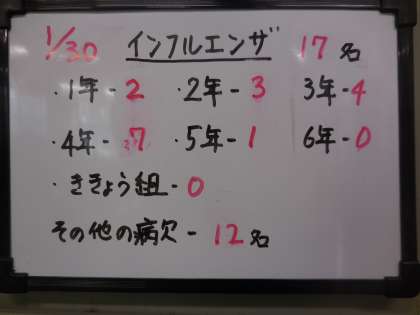 1/30 インフルエンザ 17名
・1年-2 ・2年-3 3年-4
・4年-7 ・5年-1 6年-0
・ききょう組-0
その他の病欠-12名